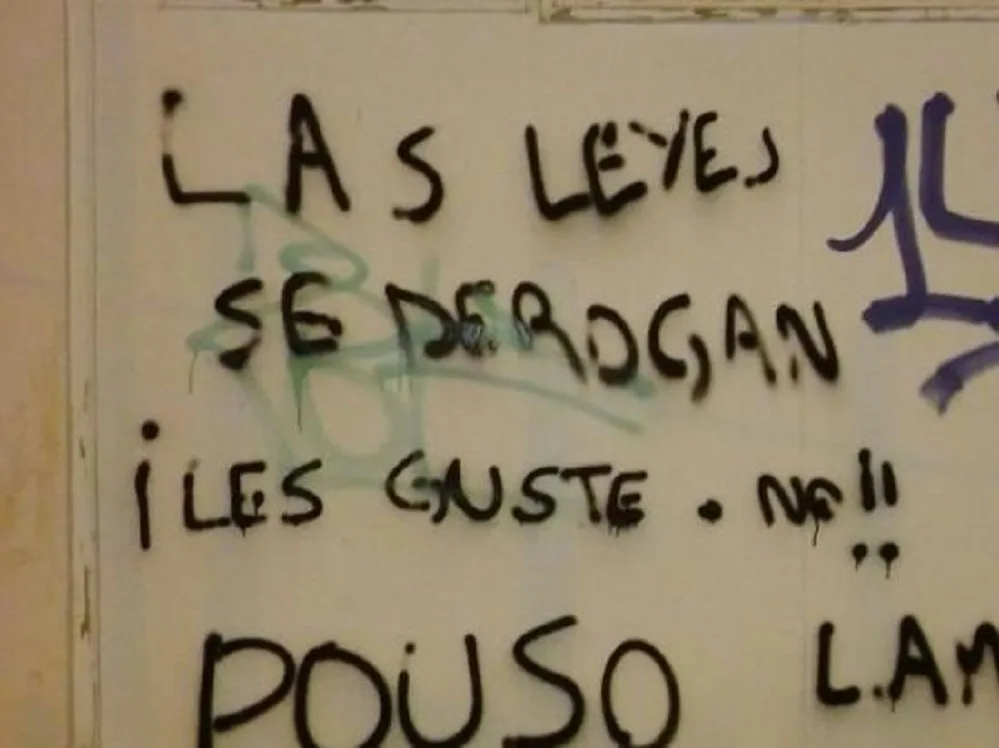 LAS LEYES
SE DEROGAN
¡LES GUSTE . NO!!
POUSO LAM